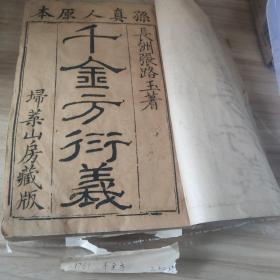 孫真人原本
長洲張路玉著
千金方衍義
掃葉山房藏版